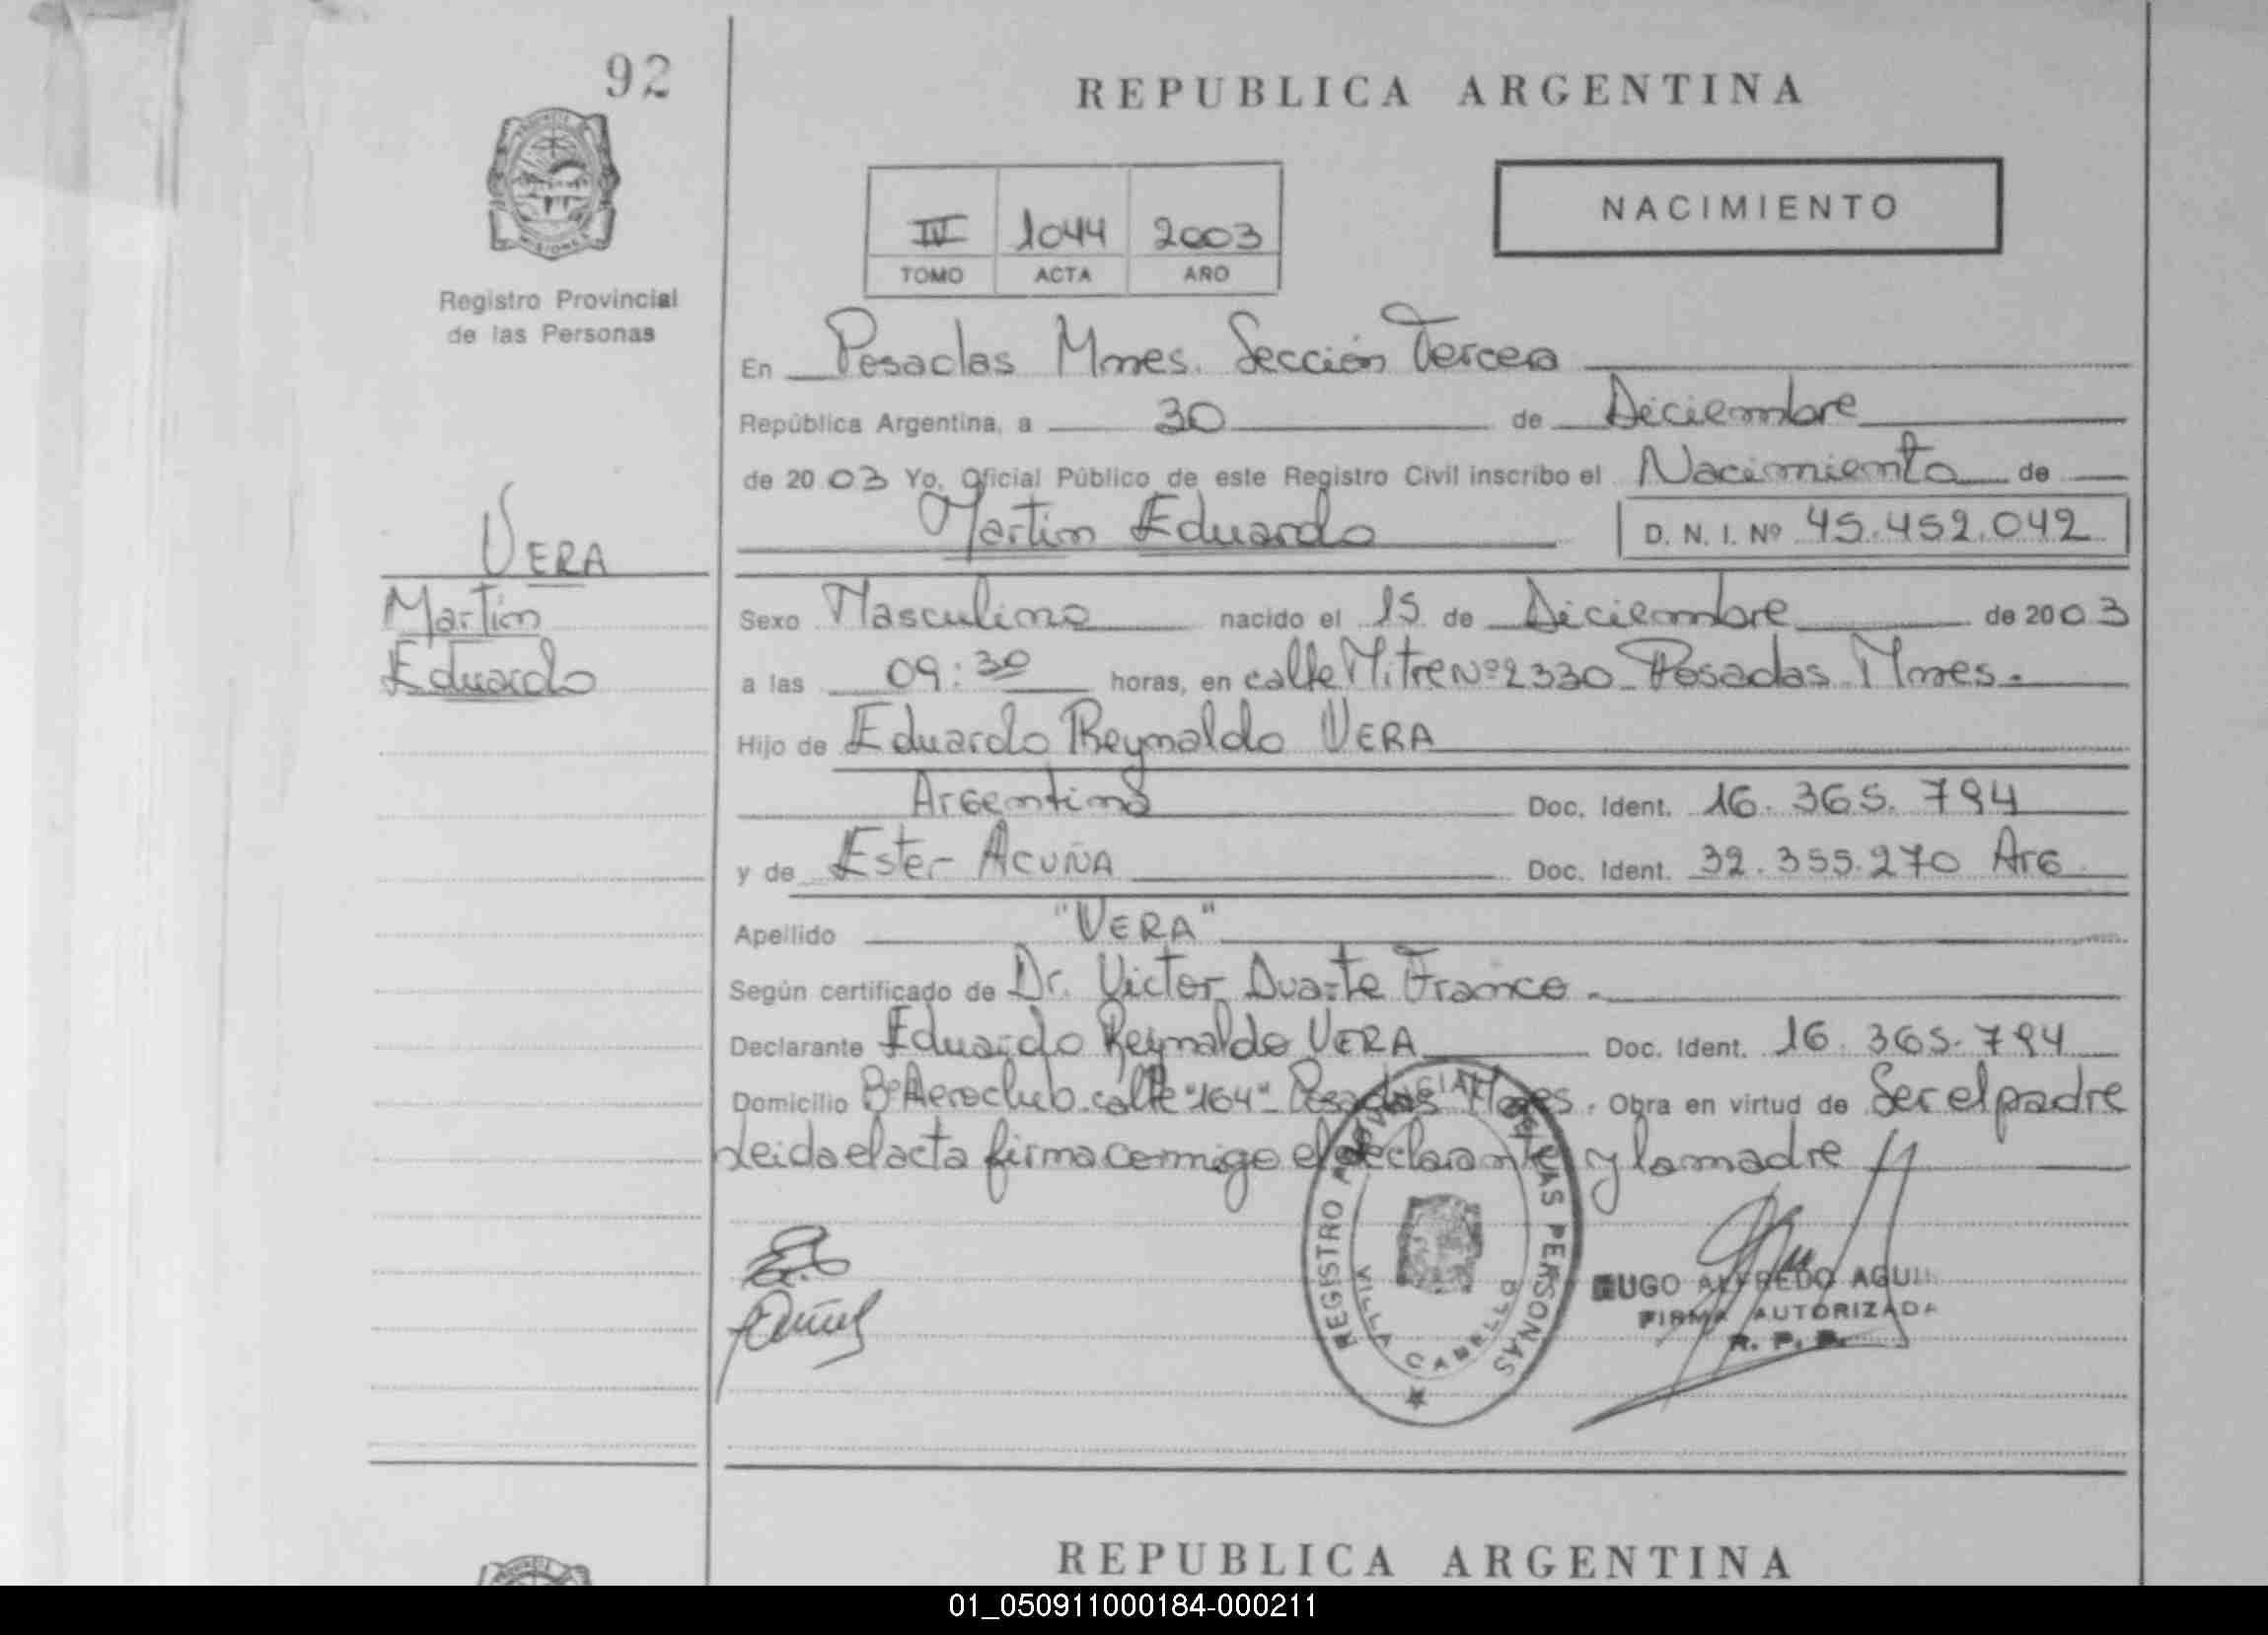 92
REPUBLICA ARGENTINA
NACIMIENTO
IV 1044 2003
TOMO ACTA AÑO
Registro Provincial
de las Personas
En Posadas Mnes. Sección Tercera
República Argentina, a 30 de Diciembre
de 2003 Yo, Oficial Público de este Registro Civil inscribo el Nacimiento de
Martin Eduardo D. N. I. Nº 45.452.042
VERA
Martin
Eduardo
Sexo Masculino nacido el 15 de Diciembre de 2003
a las 09:30 horas, en calle Mitre Nº 2330 Posadas Mnes.
Hijo de Eduardo Reynaldo VERA
Argentino Doc. Ident. 16.365.794
y de Ester ACUÑA Doc. Ident. 32.355.270 Arg
Apellido "VERA"
Según certificado de Dr. Victor Duarte Franco.
Declarante Eduardo Reynaldo VERA Doc. Ident. 16.365.794
Domicilio Bº Aeroclub. calle "164" Posadas Mnes. Obra en virtud de Ser el padre
Leida el acta firma conmigo el declarante y la madre
REGISTRO PROVINCIAL DE LAS PERSONAS
VILLA CABELLO
HUGO ALFREDO AGUI
FIRMA AUTORIZADA
R. P. P.
REPUBLICA ARGENTINA
01_050911000184-000211